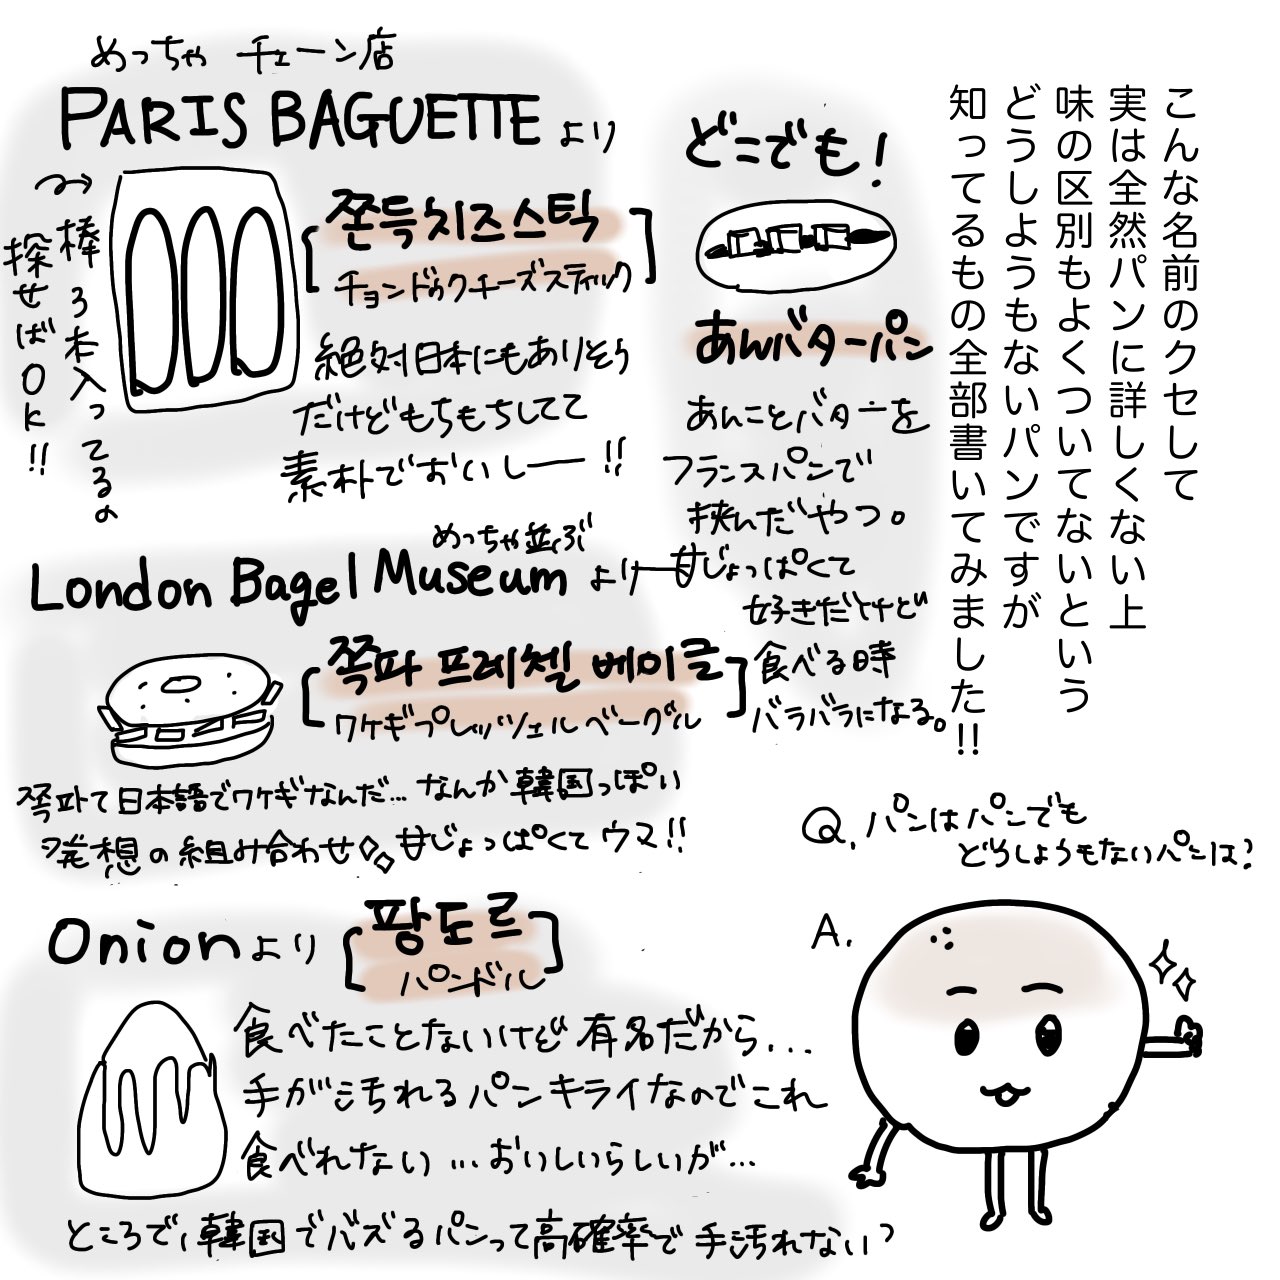 こんな名前のクセして
実は全然パンに詳しくない上
味の区別もよくついてないという
どうしようもないパンですが
知ってるもの全部書いてみました!!
めっちゃ チェーン店
PARIS BAGUETTE より
棒3本入ってるの
探せばOK!!
쫀득치즈스틱
チョンドゥクチーズスティック
絶対日本にもありそう
だけどもちもちしてて
素朴でおいしー!!
どこでも!
あんバターパン
あんことバターを
フランスパンで
挟んだやつ。
甘じょっぱくて
好きだけど
食べる時
バラバラになる。
めっちゃ並ぶ
London Bagel Museum より
쪽파 프레첼 베이글
ワケギプレッツェルベーグル
쪽파て日本語でワケギなんだ… なんか韓国っぽい
発想の組み合わせ 甘じょっぱくてウマ!!
Onionより
팡도르
パンドル
食べたことないけど有名だから...
手が汚れるパンキライなのでこれ
食べれない…おいしいらしいが…
ところで、韓国でバズるパンって高確率で手汚れない?
Q. パンはパンでも
どうしようもないパンは?
A.